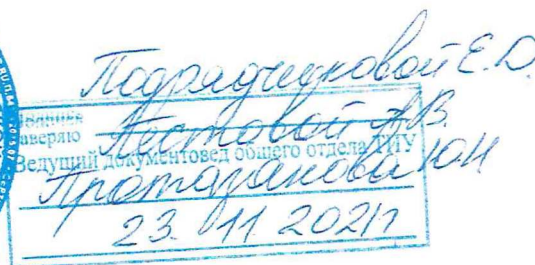 Подрядчиковой Е.D.
Пестовой А.В.
заверяю
Ведущий документовед общего отдела ТИУ
Протазанова Ю.Н
23. 11 2021г